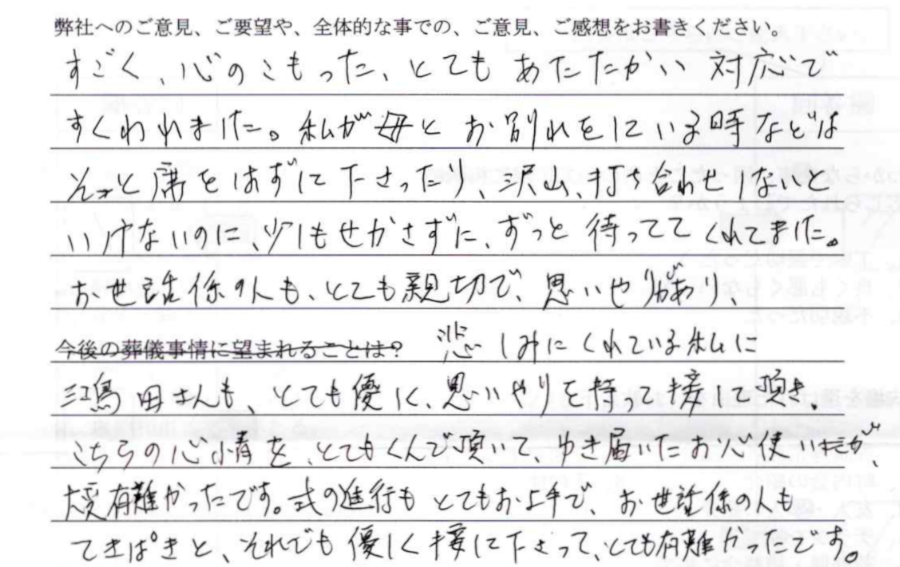 弊社へのご意見、ご要望や、全体的な事での、ご意見、ご感想をお書きください。
すごく、心のこもった、とてもあたたかい 対応で
すくわれました。私が母とお別れをしている時などは
そっと席をはずして下さったり、沢山、打ち合わせしないと
いけないのに、少しもせかさずに、ずっと待っててくれてました。
お世話係の人も、とても親切で、思いやりがあり、
今後の葬儀事情に望まれることは?
悲しみにくれている私に
江島田さんも、とても優しく、思いやりを持って接して頂き、
こちらの心情を、とてもくんで頂いて、ゆき届いたお心使いが、
大変有難かったです。式の進行もとてもお上手で、お世話係の人も
てきぱきと、それでも優しく接して下さって、とても有難かったです。